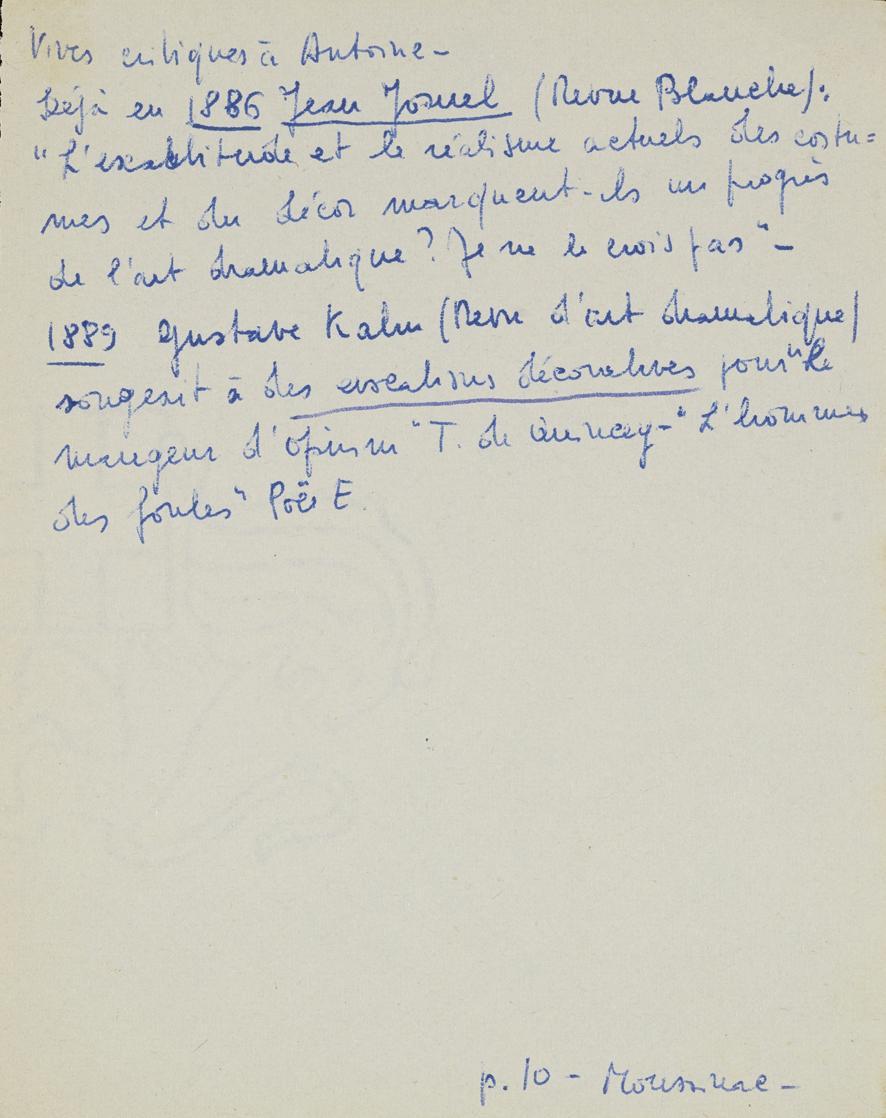 Vives critiques à Antoine –
Déjà en 1886 Jean Jornel (Revue Blanche):
"L'exactitude et le réalisme actuels des costu=
mes et du décor marquent-ils un progrès
de l'art dramatique? Je ne le crois pas" –
1889 Gustave Kahn (Revue d'art dramatique)
songeait à des décoratives pour "Le
mangeur d'opium" T. de Quincey – "L'hommes
des foules" Poë E.
p. 10 – Moussinac –